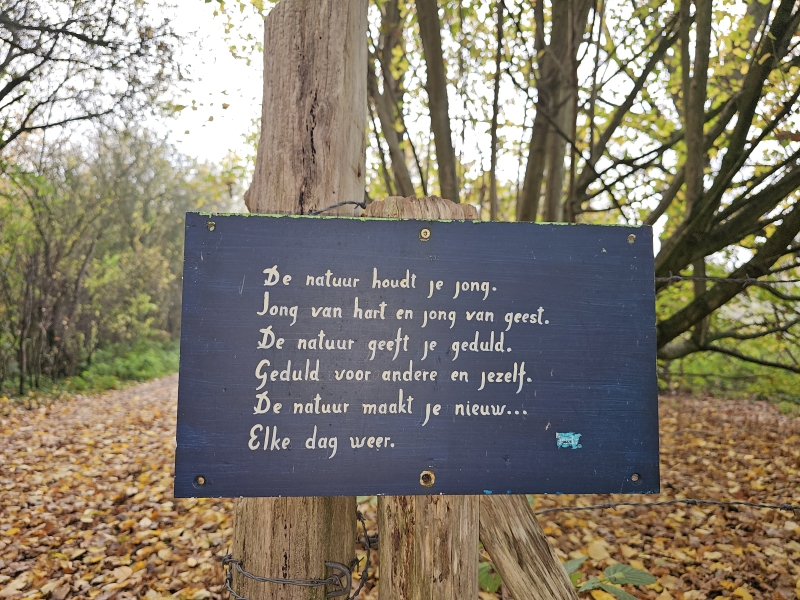 De natuur houdt je jong.
Jong van hart en jong van geest.
De natuur geeft je geduld.
Geduld voor andere en jezelf.
De natuur maakt je nieuw...
Elke dag weer.